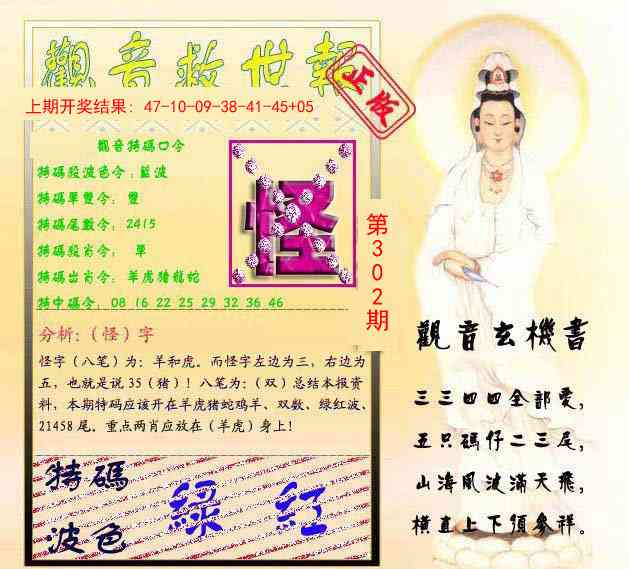 觀音救世報
正版
上期开奖结果: 47-10-09-38-41-45+05
觀音特碼口令
特碼段波色令:藍波
特碼單雙令: 雙
特碼尾數令: 2415
特碼段肖令: 單
特碼出肖令: 羊虎猪龍蛇
特中碼令: 08 16 22 25 29 32 36 46
怪
第302期
分析:（怪）字
怪字（八笔）为：羊和虎。而怪字左边为三，右边为
五，也就是说 35（猪）！八笔为：（双）总结本报资
料，本期特码应该开在羊虎猪蛇鸡羊、双数、绿红波、
21458 尾。重点两肖应放在（羊虎）身上！
特碼
波色
綠 紅
觀音玄機書
三三四四全部愛，
五只碼仔二三尾，
山海風波滿天飛，
橫直上下須參祥。